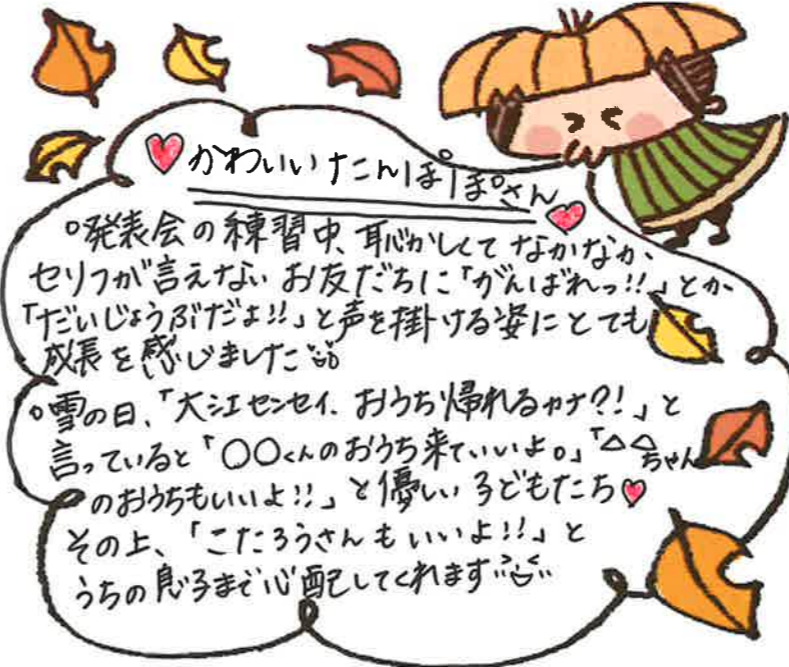 かわいいたんぽぽさん
○発表会の練習中、恥かしくて なかなか、
セリフが言えない お友だちに「がんばれっ!!」とか
「だいじょうぶだよ!!」と声を掛ける姿にとても
成長を感じました
○雪の日、「大江センセイ、おうち帰れるカナ?!」と
言っていると「〇〇くんのおうち来ていいよ。」「△△ちゃん
のおうちもいいよ!!」と優しい子どもたち
その上、「こたろうさんもいいよ!!」と
うちの息子まで心配してくれます